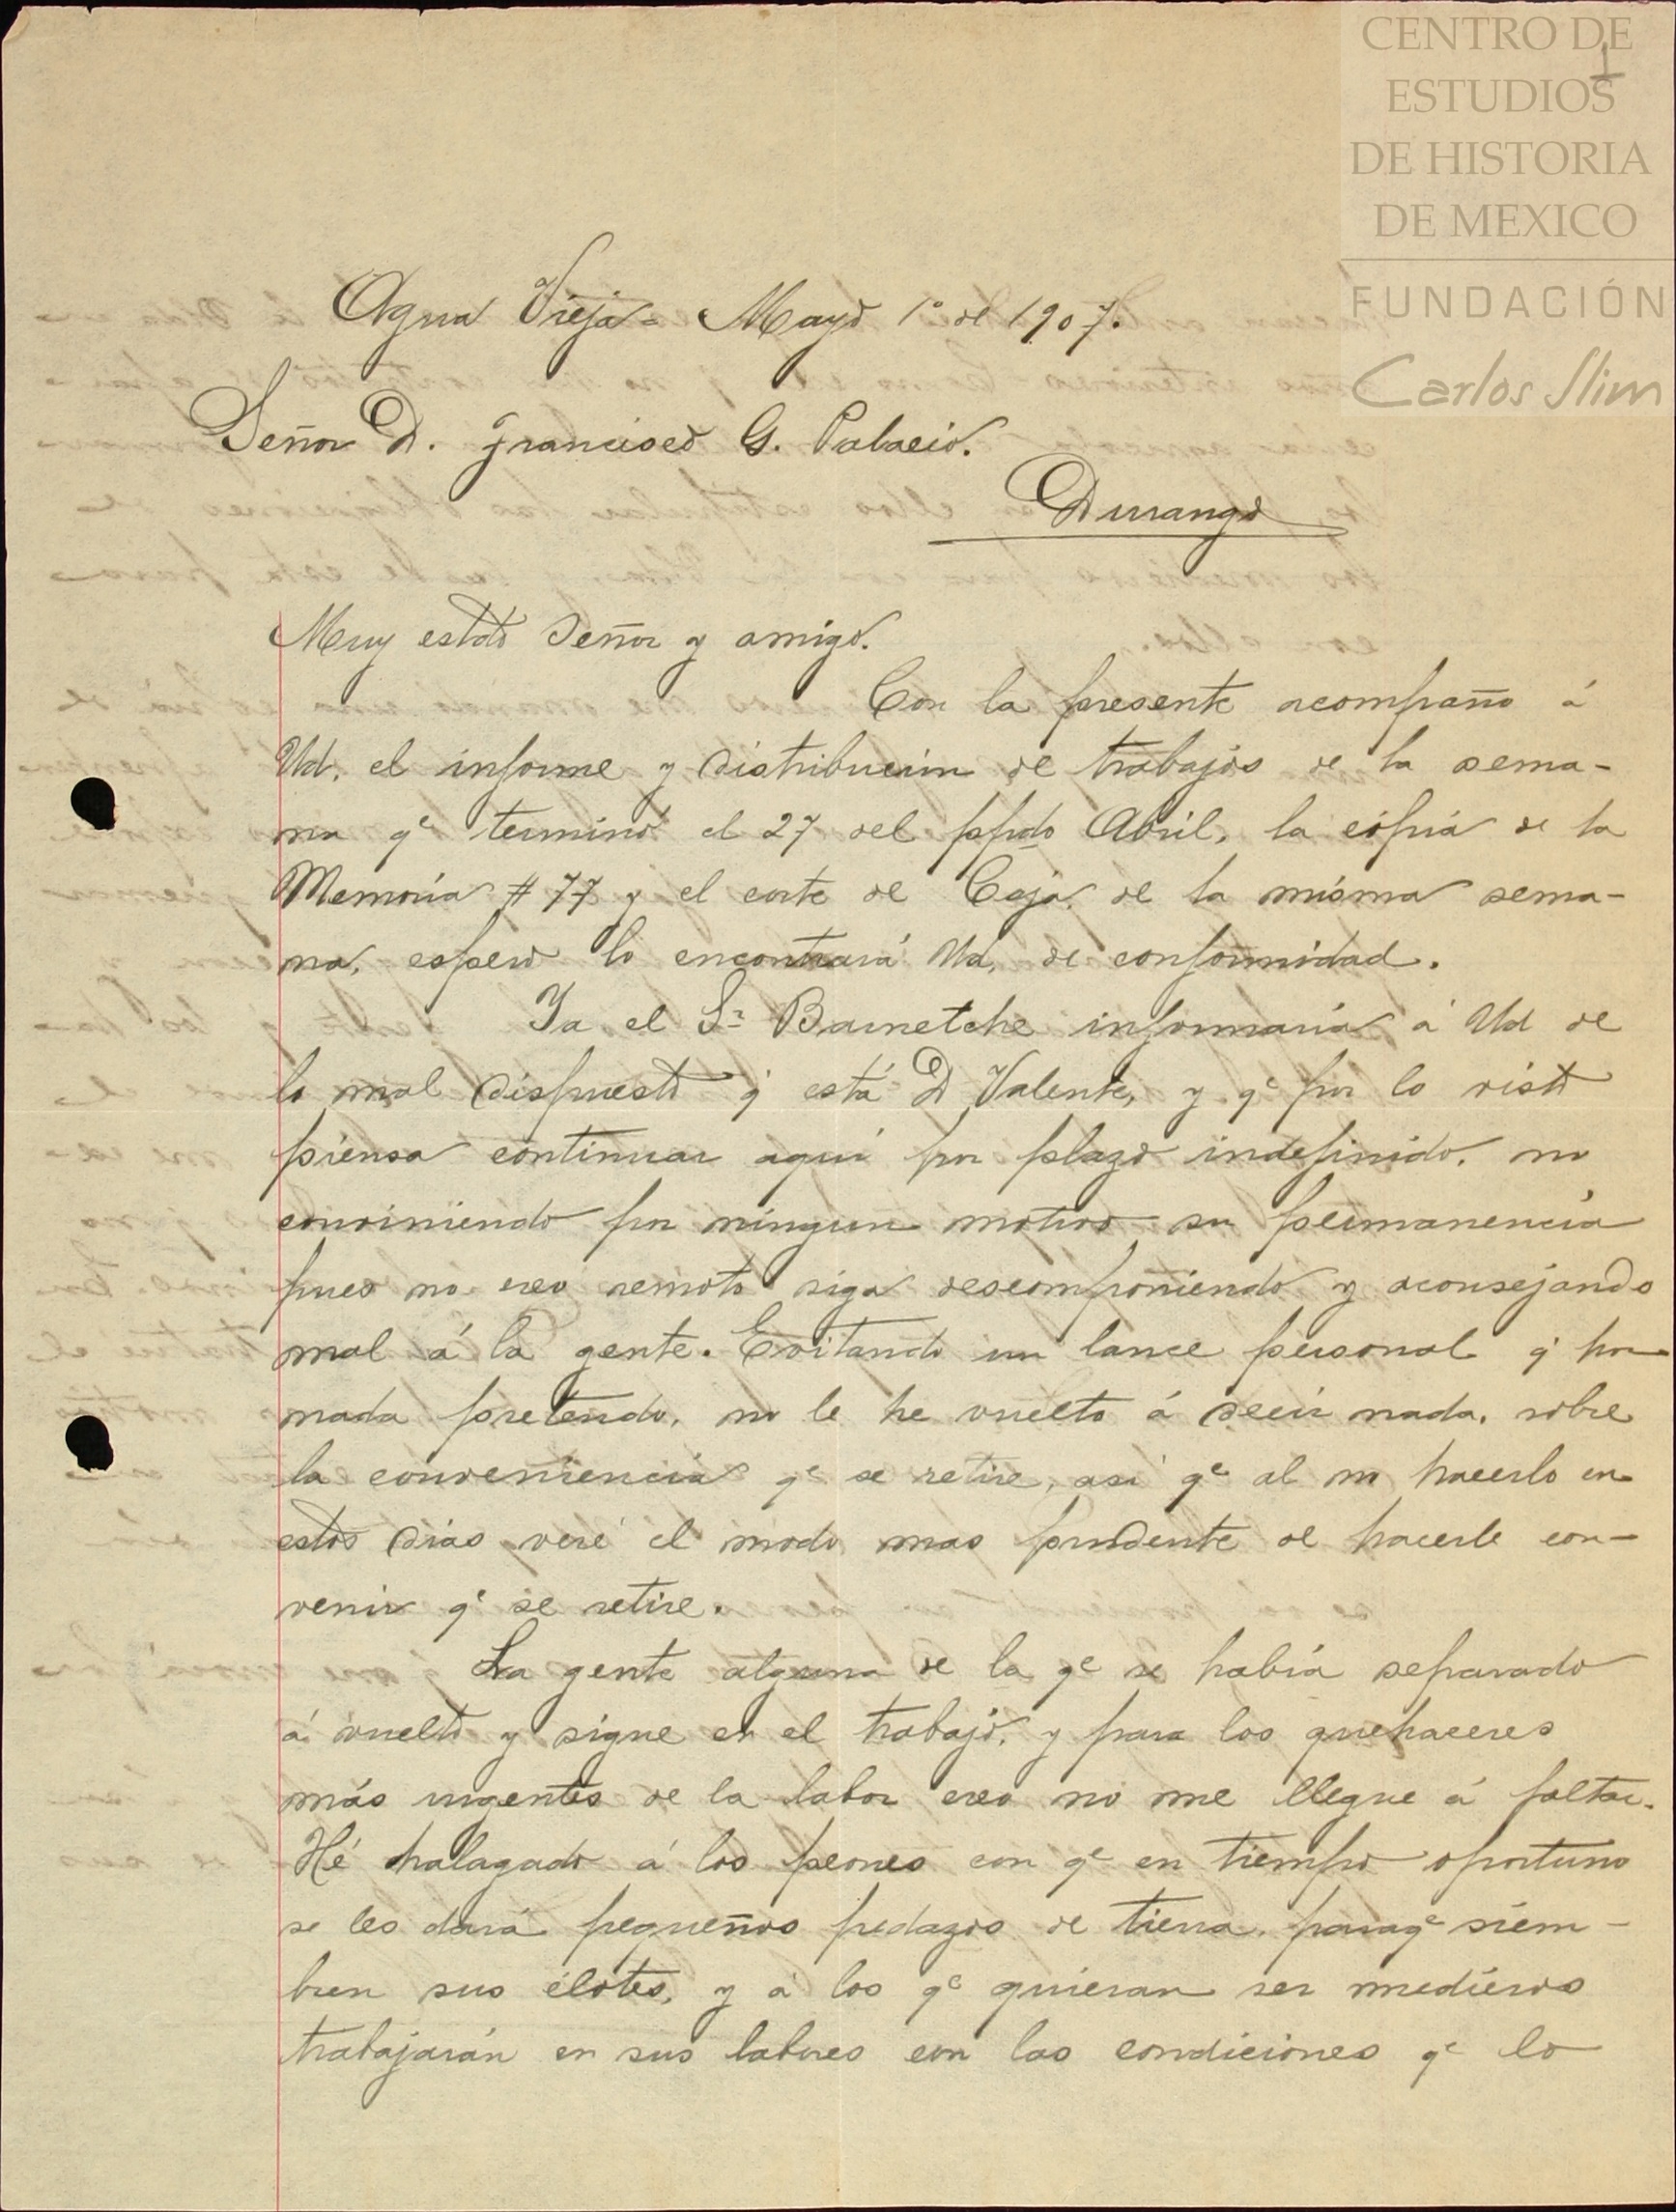 CENTRO DE
ESTUDIOS
DE HISTORIA
DE MEXICO
FUNDACIÓN
Carlos Slim
1
Agua Vieja - Mayo 1º de 1907.
Señor D. Francisco G. Palacio.
Durango
Muy estdo Señor y amigo.
Con la presente acompaño á
Ud. el informe y distribucion de trabajos de la sema-
na qe terminó el 27 del ppdo Abril, la cópia de la
Memoria # 77 y el corte de Caja de la misma sema-
na, espero lo encontrará Ud. de conformidad.
Ya el Sr Barnetche informaria á Ud de
lo mal dispuesto q' está D Valente, y qe por lo visto
piensa continuar aquí por plazo indefinido, no
conviniendo por ningun motivo su permanencia
pues no creo remoto siga descomponiendo y aconsejando
mal á la gente. Evitando un lance personal q' por
nada pretendo, no le he vuelto á decir nada, sobre
la conveniencia qe se retire, asi qe al no hacerlo en
estos dias veré el modo mas prudente de hacerle con-
venir qe se retire.
La gente alguna de la qe se había separado
á vuelto y sigue en el trabajo, y para los quehaceres
más urgentes de la labor creo no me llegue á faltar.
Hé halagado á los peones con qe en tiempo oportuno
se les dará pequeños pedazos de tierra, paraqe siem-
bren sus élotes, y á los qe quieran ser mediéros
trabajarán en sus labores con las condiciones qe lo